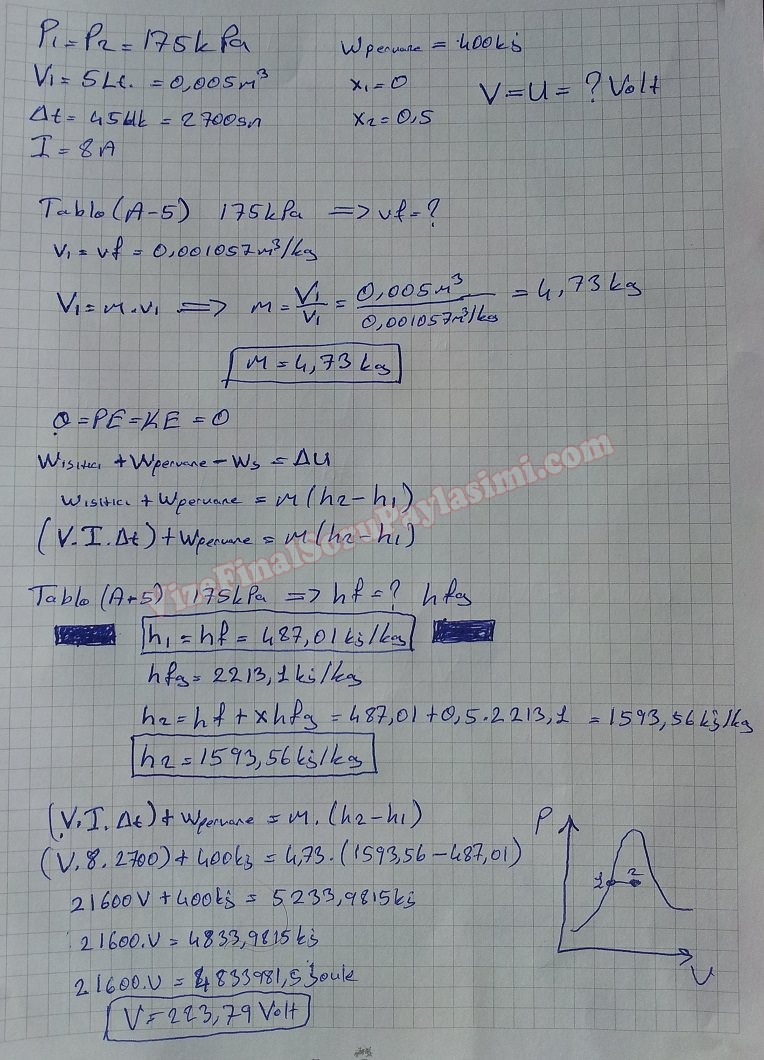 P₁ = P₂ = 175 kPa
V₁ = 5 Lt. = 0,005 m³
Δt = 45 dk = 2700 sn
I = 8 A
Wpervane = 400 kj
x₁ = 0
x₂ = 0,5
V = U = ? Volt
Tablo (A-5) 175 kPa ⟹ vf = ?
v₁ = vf = 0,001057 m³/kg
V₁ = m.v₁ ⟹ m = V₁/v₁ = 0,005 m³/0,001057 m³/kg = 4,73 kg
m = 4,73 kg
Q = PE = KE = 0
Wısıtıcı + Wpervane - Ws = ΔU
Wısıtıcı + Wpervane = m (h₂ - h₁)
(V.I.Δt) + Wpervane = m (h₂ - h₁)
VizeFinalSoruPaylasimi.com
Tablo (A-5) 175 kPa ⟹ hf = ? hfg
h₁ = hf = 487,01 kj/kg
hfg = 2213,1 kj/kg
h₂ = hf + x hfg = 487,01 + 0,5.2213,1 = 1593,56 kj/kg
h₂ = 1593,56 kj/kg
(V.I.Δt) + Wpervane = m.(h₂ - h₁)
(V.8.2700) + 400 kj = 4,73.(1593,56 - 487,01)
21600 V + 400 kj = 5233,9815 kj
21600.V = 4833,9815 kj
21600.V = 4833981,5 Joule
V = 223,79 Volt
P
1 2
V